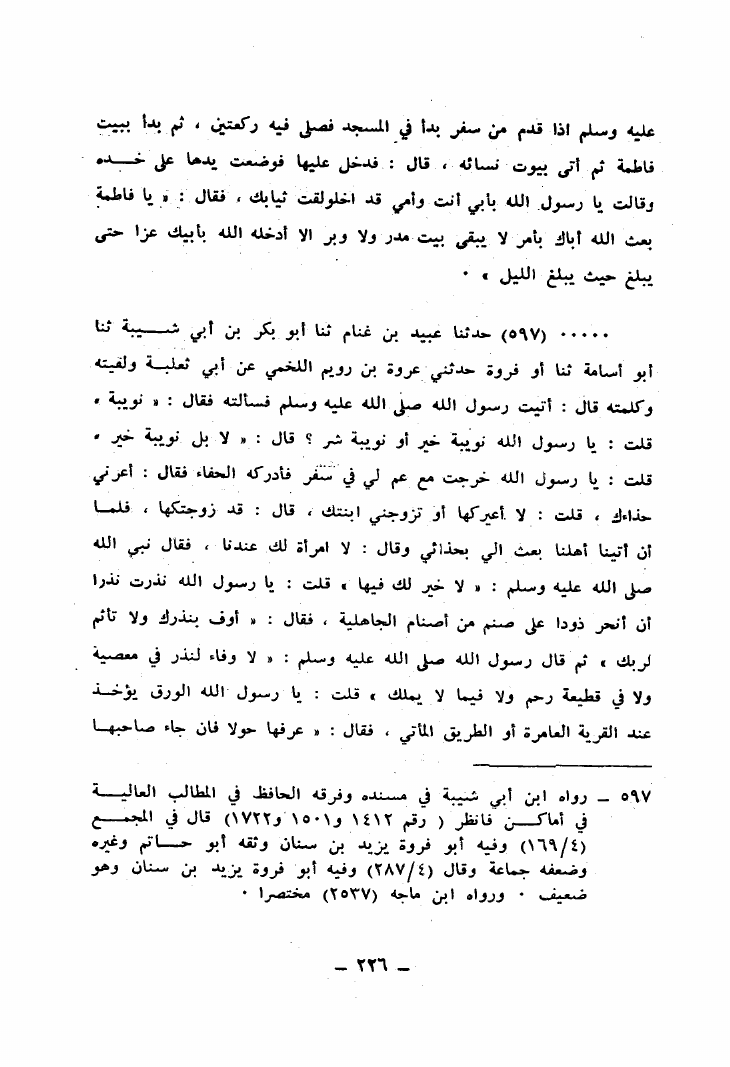 عليه وسلم اذا قدم من سفر بدأ في المسجد فصلى فيه ركعتين ، ثم بدأ ببيت
فاطمة ثم أتى بيوت نسائه ، قال : فدخل عليها فوضعت يدها على خـــده
وقالت يا رسول الله بأبي أنت وأمي قد اخلولقت ثيابك ، فقال : « يا فاطمة
بعث الله أباك بأمر لا يبقى بيت مدر ولا وبر الا أدخله الله بأبيك عزا حتى
يبلغ حيث يبلغ الليل » ٠
٠٠٠٠٠ (٥٩٧) حدثنا عبيد بن غنام ثنا أبو بكر بن أبي شـــيبة ثنا
أبو أسامة ثنا أو فروة حدثني عروة بن رويم اللخمي عن أبي ثعلبـة ولقيته
وكلمته قال : أتيت رسول الله صلى الله عليه وسلم فسألته فقال : « نويبة »
قلت : يا رسول الله نويبة خير أو نويبة شر ؟ قال : « لا بل نويبة خير »
قلت : يا رسول الله خرجت مع عم لي في سفر فأدركه الحفاء فقال : أعرني
حذاءك ، قلت : لا أعيركها أو تزوجني ابنتك ، قال : قد زوجتكها ، فلمـا
أن أتينا أهلنا بعث الي بحذائي وقال : لا امرأة لك عندنا ، فقال نبي الله
صلى الله عليه وسلم : « لا خير لك فيها » قلت : يا رسول الله نذرت نذرا
أن أنحر ذودا على صنم من أصنام الجاهلية ، فقال : « أوف بنذرك ولا تأثم
لربك » ثم قال رسول الله صلى الله عليه وسلم : « لا وفاء لنذر في معصية
ولا في قطيعة رحم ولا فيما لا يملك » قلت : يا رسول الله الورق يؤخـذ
عند القرية العامرة أو الطريق المأتي ، فقال : « عرفها حولا فان جاء صاحبهـا
٥٩٧ ــ رواه ابن أبي شيبة في مسنده وفرقه الحافظ في المطالب العاليـــة
في أماكــن فانظر ( رقم ١٤١٢ و١٥٠١ و١٧٢٢) قال في المجمــع
(١٦٩/٤) وفيه أبو فروة يزيد بن سنان وثقه أبو حـــاتم وغيره
وضعفه جماعة وقال (٢٨٧/٤) وفيه أبو فروة يزيد بن سنان وهو
ضعيف ٠ ورواه ابن ماجه (٢٥٣٧) مختصرا ٠
ــ ٢٢٦ ــ